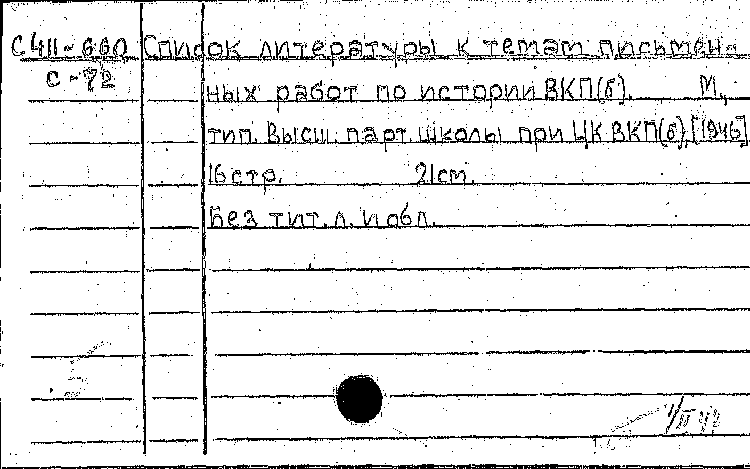 С411-660 Список литературы к темам письмен-
С-72
ных работ по истории ВКП(б). М.,
тип. Высш. парт. школы при ЦК ВКП(б), [1946]
16 стр. 21 см.
Без тит. л. и обл.
5